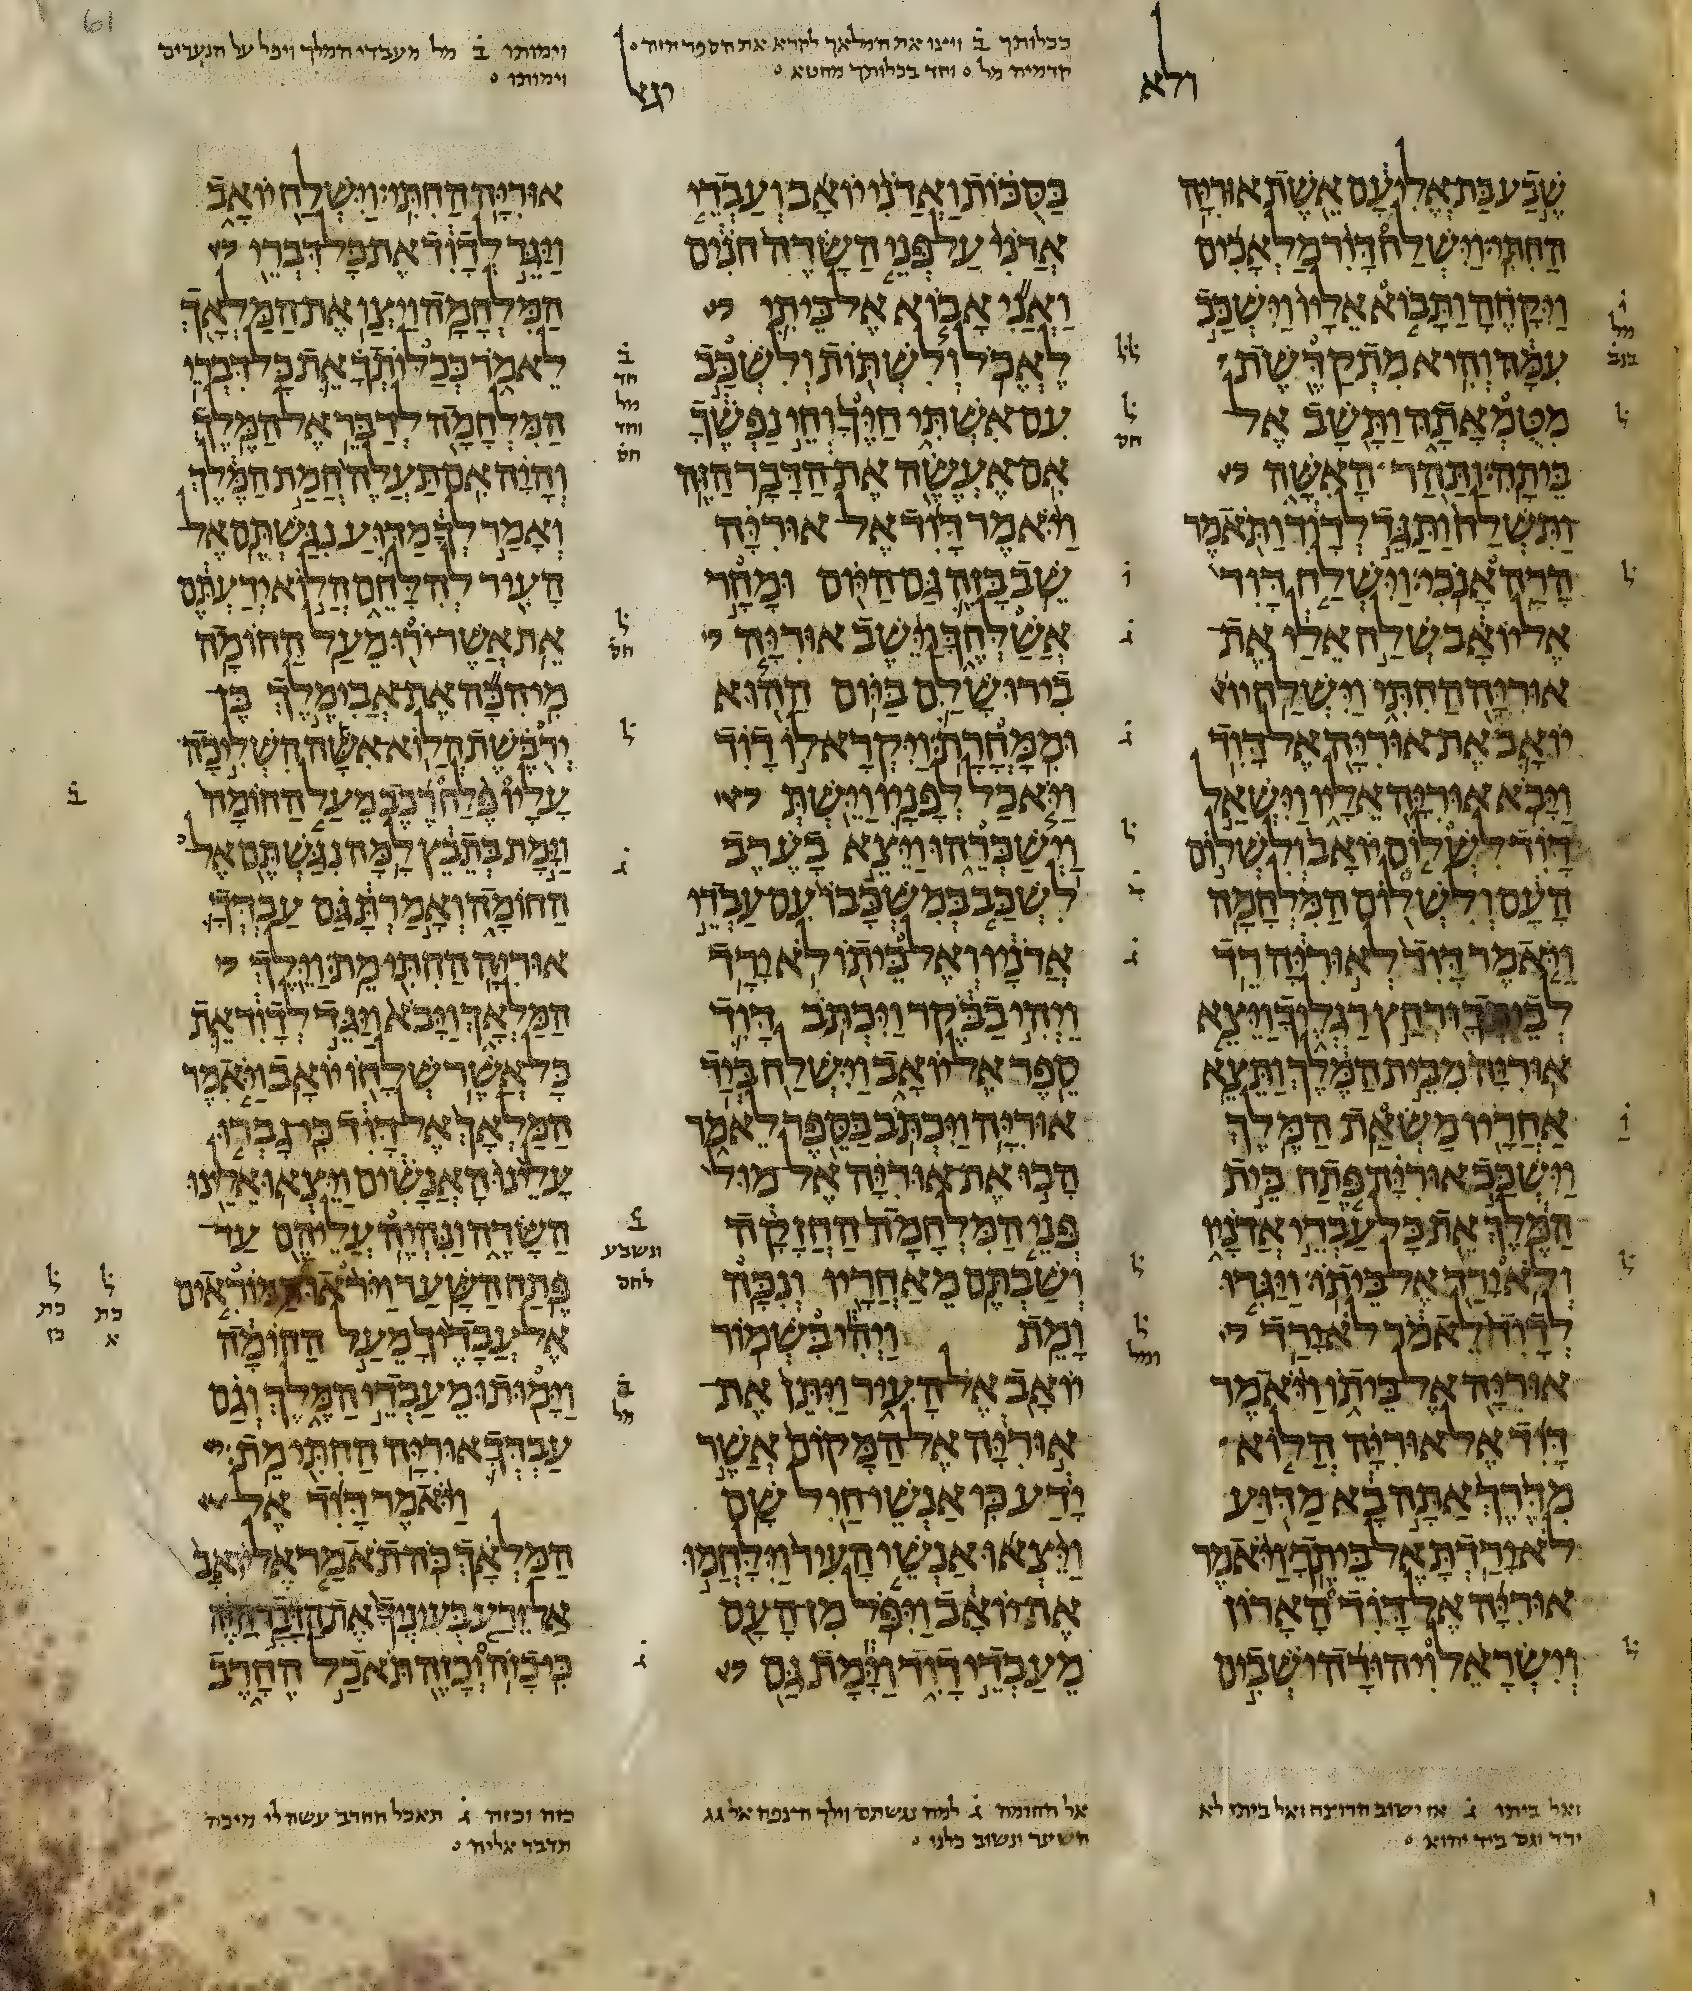 ככלותך ב̇
קדמיה מל וחד בכלותך מחטא
וימותו ב̇ מל מעבדי המלך ויפל על הנערים
וימותו
ולא
שבע בת אליעם אשת אוריה
החתי וישלח דוד מלאכים
ויקחה ותבוא אליו וישכב
עמה והיא מתקדשת
מטמאתה ותשב אל
ביתה ותהר האשה
ותשלח ותגד לדוד ותאמר
הרה אנכי וישלח דוד
אל יואב שלח אלי את
אוריה החתי וישלח יוא
יואב את אוריה אל דוד
ויבא אוריה אליו וישאל
דוד לשלום יואב ולשלום
העם ולשלום המלחמה
ויאמר דוד לאוריה רד
לביתך ורחץ רגליך ויצא
אוריה מבית המלך ותצא
אחריו משאת המלך
וישכב אוריה פתח בית
המלך את כל עבדי אדניו
ולא ירד אל ביתו ויגדו
לדוד לאמר לא ירד
אוריה אל ביתו ויאמר
דוד אל אוריה הלוא
מדרך אתה בא מדוע
לא ירדת אל ביתך ויאמר
אוריה אל דוד הארון
וישראל ויהודה ישבים
בסכות ואדני יואב ועבדי
אדני על פני השדה חנים
ואני אבוא אל ביתי
לאכל ולשתות ולשכב
עם אשתי חיך וחי נפשך
אם אעשה את הדבר הזה
ויאמר דוד אל אוריה
שב בזה גם היום ומחר
אשלחך וישב אוריה
בירושלם ביום ההוא
וממחרת ויקרא לו דוד
ויאכל לפניו וישת
וישכרהו ויצא בערב
לשכב במשכבו עם עבדי
אדניו ואל ביתו לא ירד
ויהי בבקר ויכתב דוד
ספר אל יואב וישלח ביד
אוריה ויכתב בספר לאמר
הבו את אוריה אל מול
פני המלחמה החזקה
ושבתם מאחריו ונכה
ומת ויהי בשמור
יואב אל העיר ויתן את
אוריה אל המקום אשר
ידע כי אנשי חיל שם
ויצאו אנשי העיר וילחמו
את יואב ויפל מן העם
מעבדי דוד וימת גם
אוריה החתי וישלח יואב
ויגד לדוד את כל דברי
המלחמה ויצו את המלאך
לאמר ככלותך את כל דברי
המלחמה לדבר אל המלך
והיה אם תעלה חמת המלך
ואמר לך מדוע נגשתם אל
העיר להלחם הלוא ידעתם
את אשר ירו מעל החומה
מי הכה את אבימלך בן
ירבשת הלוא אשה השליכה
עליו פלח רכב מעל החומה
וימת בתבץ למה נגשתם אל
החומה ואמרת גם עבדך
אוריה החתי מת וילך
המלאך ויבא ויגד לדוד את
כל אשר שלחו יואב ויאמר
המלאך אל דוד כי גברו
עלינו האנשים ויצאו אלינו
השדה ונהיה עליהם עד
פתח השער ויראו המוראים
אל עבדיך מעל החומה
וימותו מעבדי המלך וגם
עבדך אוריה החתי מת
ויאמר דוד אל
המלאך כה תאמר אל יואב
אל ירע בעיניך את הדבר הזה
כי כזה וכזה תאכל החרב
ואל ביתו ג̇ אז ישוב הרוצח ואל ביתו לא
ירד וגם ביד יהוא
אל החומה ג̇ למה נגשתם וילך הרגפה אל גג
השער ונשוב כלנו
כזה וכזה ג̇ תאכל החרב עשה לי מיכה
תדבר אליה